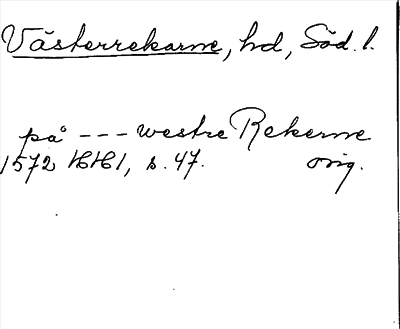 Västerrekarne, hd, Söd. l.
på --- westre Rekerne
1572 HH 1, s. 47. orig.